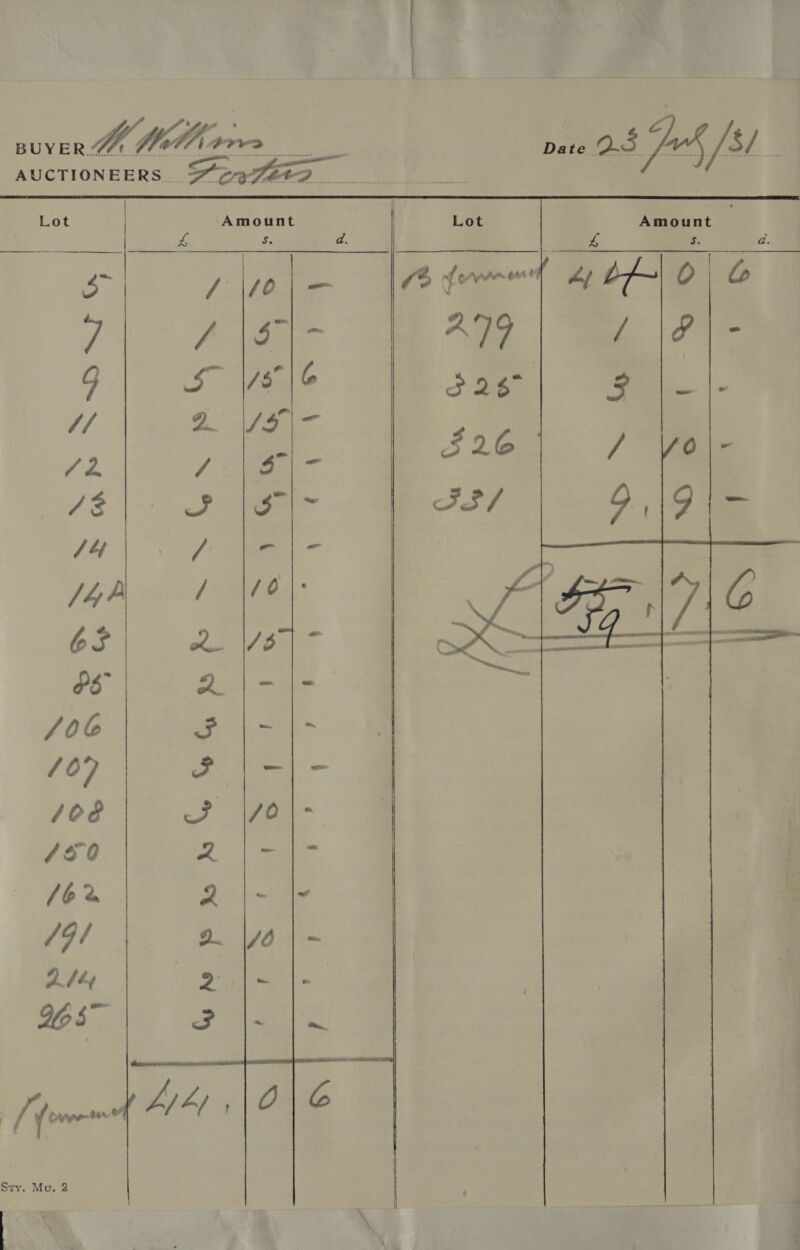 BUYER W. Williams Date 23 /31
AUCTIONEERS Fosters
Lot Amount Lot Amount
£ s. d. £ s. d.
5 1 10 - B forward 44 0 6
7 1 5 - 279 1 8 -
9 5 15 6 325 3 - -
11 2 15 - 326 1 10 -
12 1 5 -
13 3 5 - 331 9, 9 -
14 1 - -
14A 1 10 - £ 59, 7, 6
63 2 15 -
85 2 - -
106 3 - -
107 3 - -
108 3 10 -
150 2 - -
162 2 - -
191 2 10 -
214 2 - -
265 3 - -
forward 44, 0 6
Sty. Mu. 2